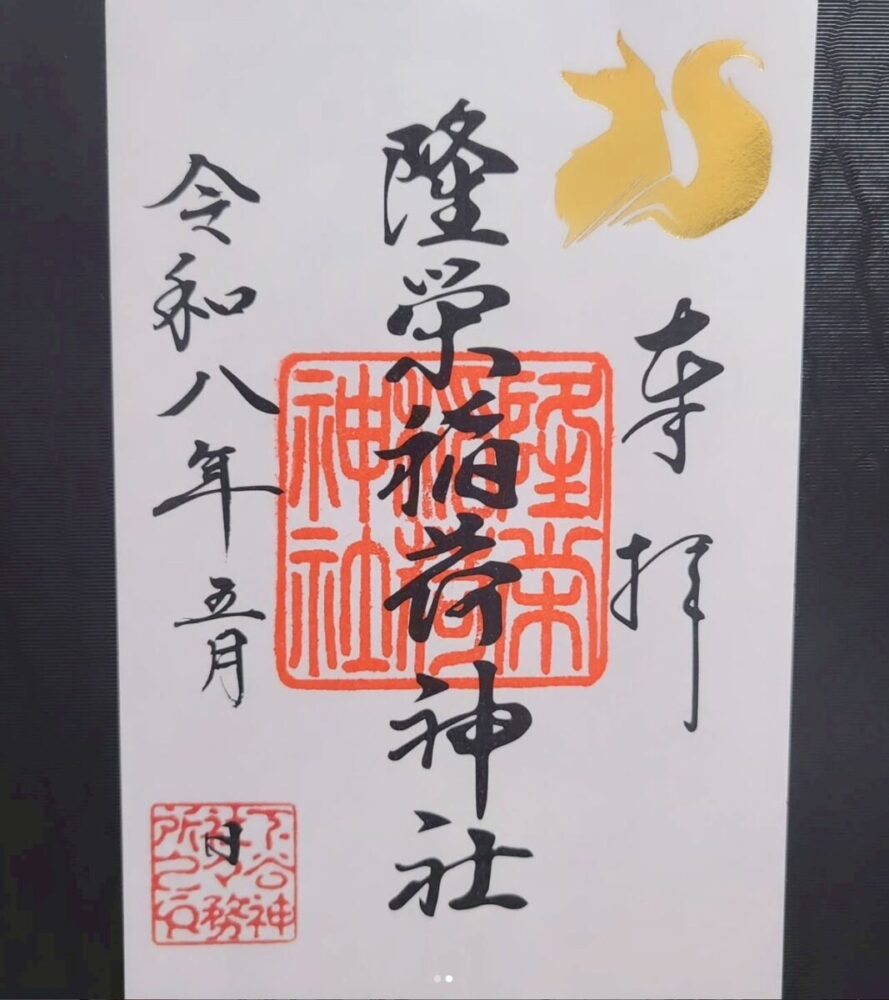 奉拝
隆栄稲荷神社
隆栄
稲荷
神社
令和八年五月
日
下谷神
社々務
所之印